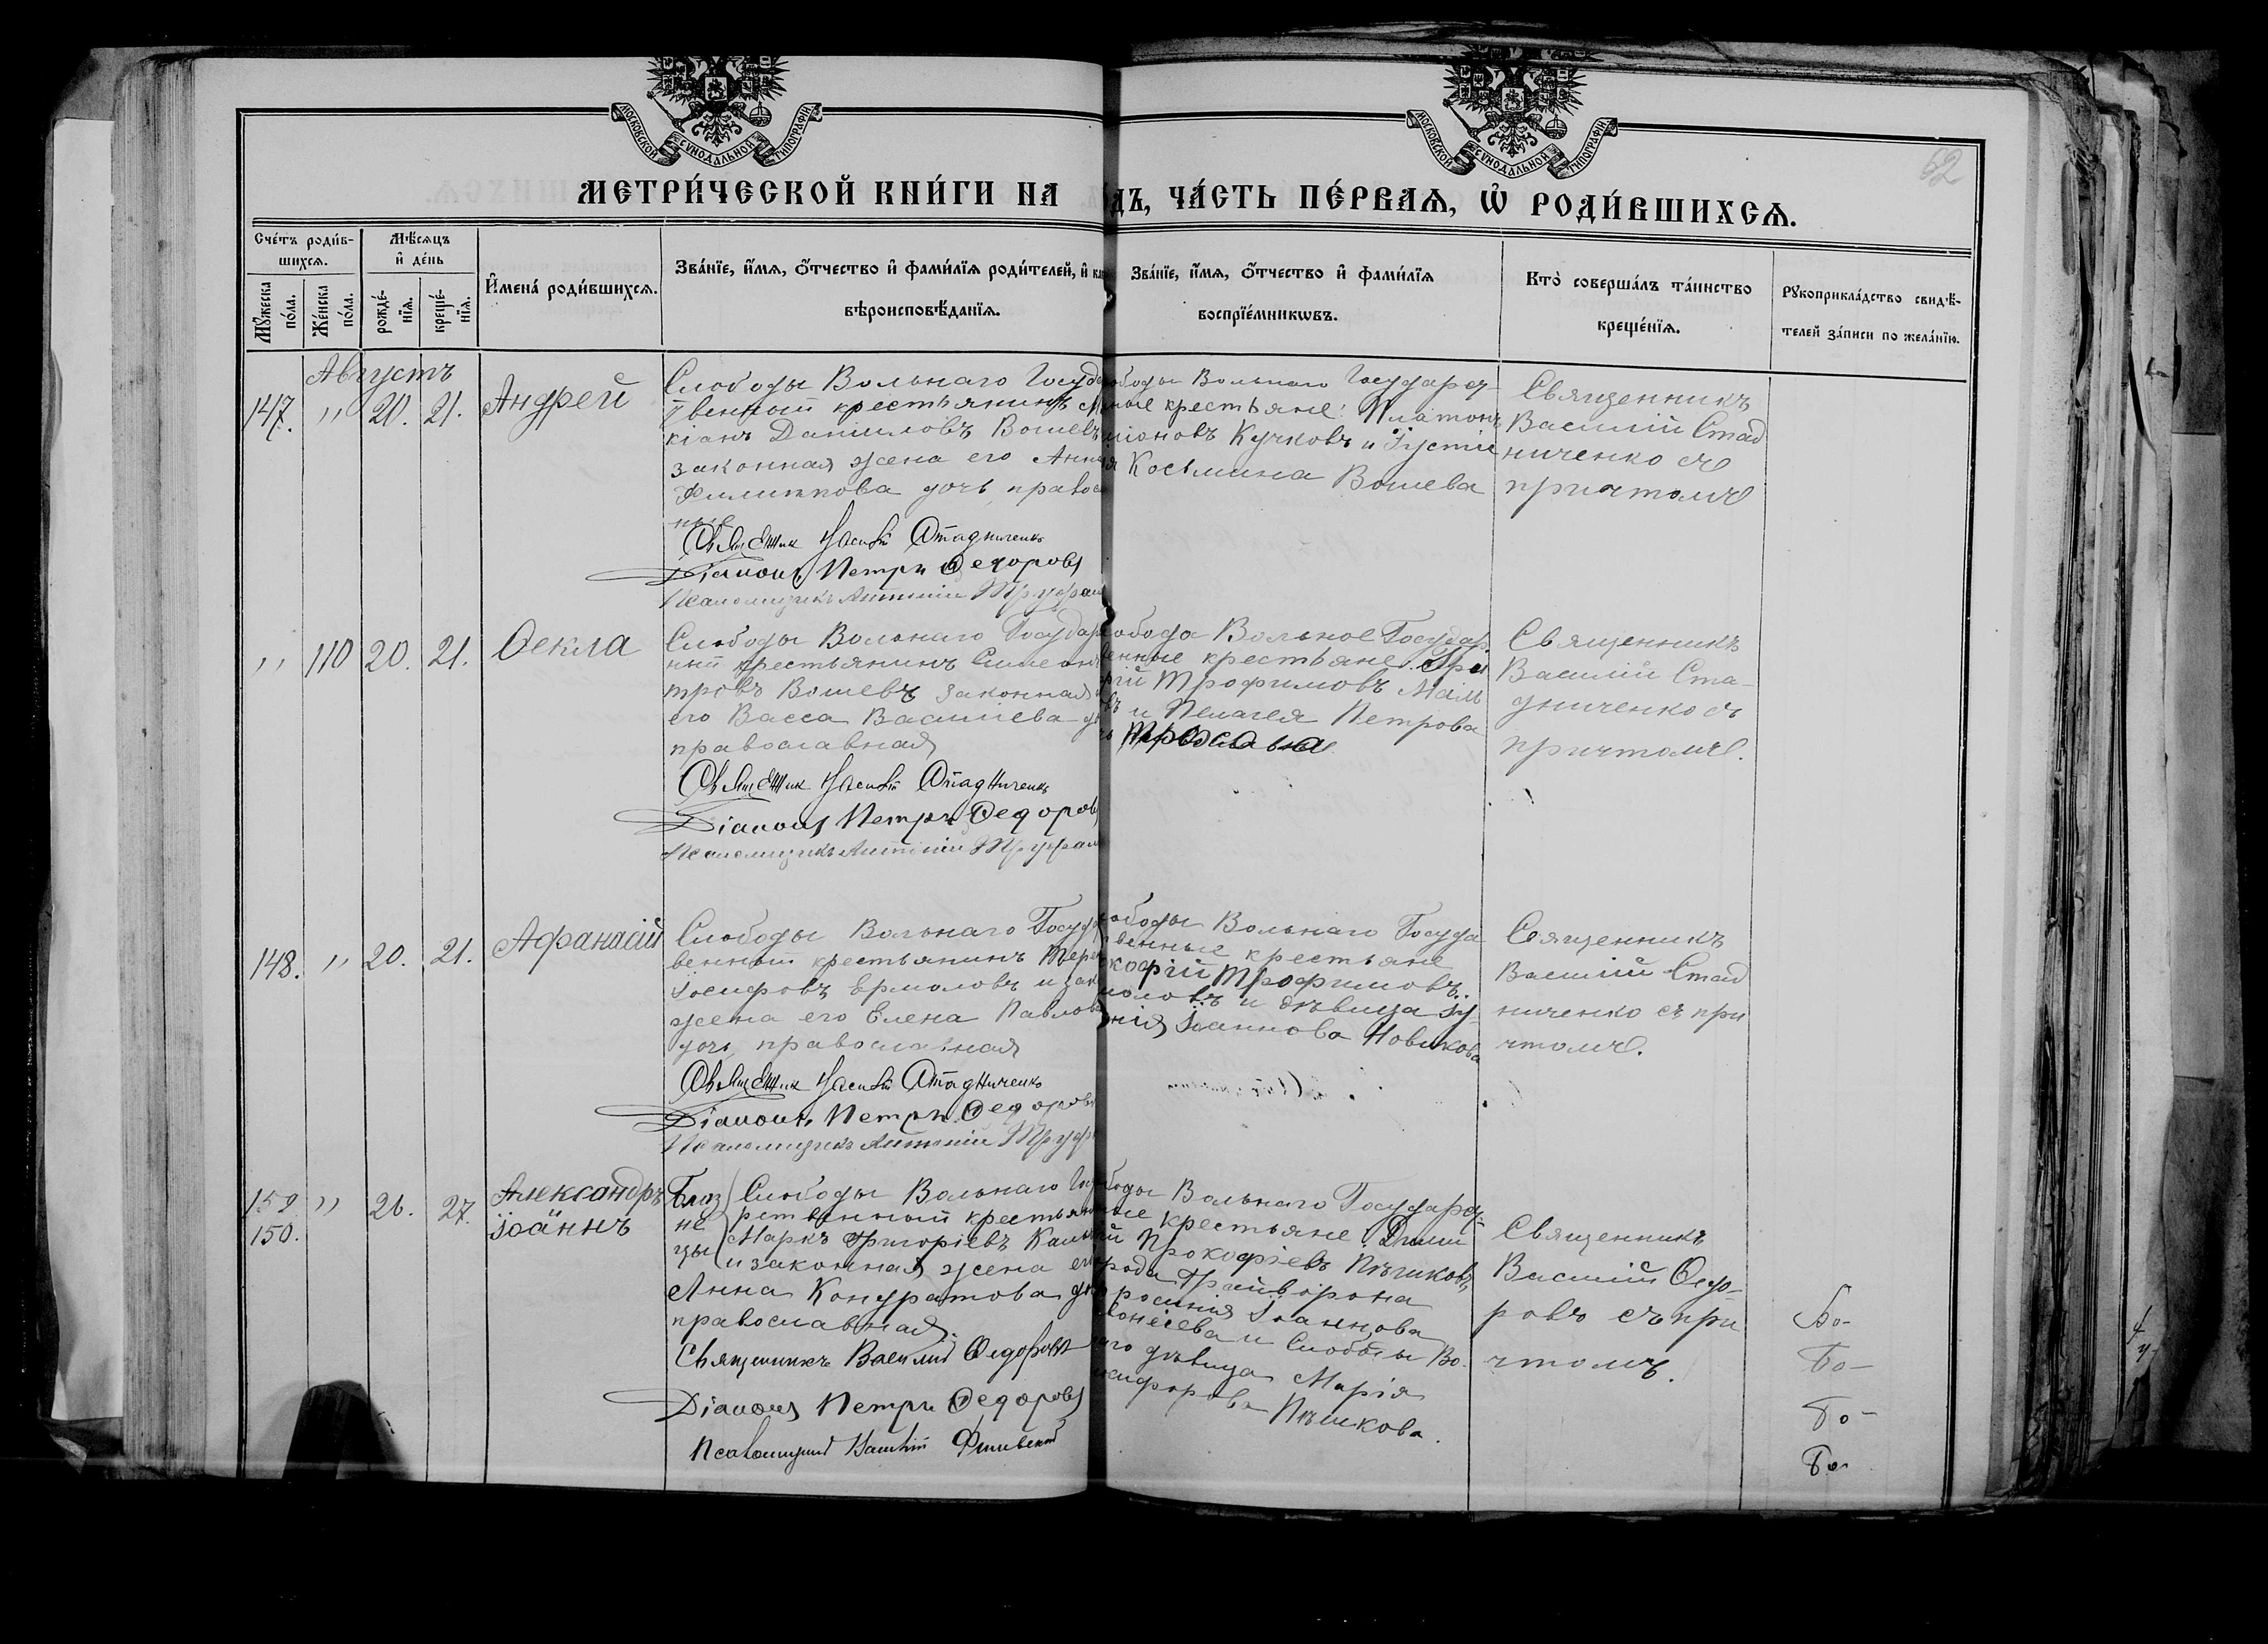 МОСКОВСКОЙ СУНОДАЛЬНОЙ ТИПОГРАФИИ
МОСКОВСКОЙ СУНОДАЛЬНОЙ ТИПОГРАФИИ
62
МЕТРИ́ЧЕСКОЙ КНИ́ГИ НА
ДЪ, ЧА́СТЬ ПЕ́РВАЯ, Ѡ҆ РОДИ́ВШИХСЯ.
Сче́тъ роди́в-
шихся.
Мѣ́сяцъ
и҆ де́нь
Мꙋ́жеска
по́ла.
Же́нска
по́ла.
рожде́-
нїя.
креще́-
нїя.
И҆мена̀ роди́вшихся.
Зва́нїе, и҆́мя, ѻ҆́тчество и҆ фами́лїя роди́телей, и҆ ка
вѣроисповѣ́данїя.
Зва́нїе, и҆́мя, ѻ҆́тчество и҆ фами́лїя
воспрїе́мникѡвъ.
Кто̀ соверша́лъ та́инство
креще́нїя.
Рꙋкоприкла́дство свидѣ́-
телей за́писи по жела́нїю.
Августъ
147. " 20. 21. Андрей
Слободы Вольнаго Госуда
твенный крестьянинъ М
кіанъ Даниловъ Вошевъ
законная жена его Анна
Филиппова дочь правос
ные
Священник Василій Стадниченко
Діаконъ Петръ Федоровъ
Псаломщикъ Антоній Труфан
ободы Вольнаго Государс-
ные крестьяне: Платонъ
міоновъ Кучковъ и Іустин
я Косьмина Вошева
Священникъ
Василій Стад
ниченко съ
причтомъ
" 110 20. 21. Ѳекла
Слободы Вольнаго Государ
ный крестьянинъ Симеонъ
тровъ Вошевъ законная
его Васса Василіева до
православная
Священник Василій Стадниченко
Діаконъ Петръ Федоровъ
Псаломщикъ Антоній Труфан
обода Вольное Государ
венные крестьяне: Гри
рій Трофимовъ Маль
въ и Пелагея Петрова
Священникъ
Василій Ста-
дниченко съ
причтомъ.
148. " 20. 21. Афанасій
Слободы Вольнаго Госуда
венный крестьянинъ Терен
Іосифовъ Ермоловъ и зак
жена его Елена Павлова
дочь православная
Священник Василій Стадниченко
Діаконъ Петръ Федоровъ
Псаломщикъ Антоній Труф
ободы Вольнаго Госуда
венные крестьяне
кофій Трофимовъ
моловъ и дѣвица Іу-
нія Іоаннова Новикова
Священникъ
Василій Стад
ниченко съ при
чтомъ.
159 " 26. 27. Александръ
150. Іоаннъ
Близ
не
цы
Слободы Вольнаго Госу
рственный крестьян
Маркъ Григоріевъ Каш
и законная жена его
Анна Кондратова до
православная.
Священникъ Василій Федоровъ
Діаконъ Петръ Федоровъ
Псаломщикъ Василій
боды Вольнаго Государс-
ные крестьяне: Дими
ій Прокофіевъ Пѣшковъ,
рода Грайворона
росинія Іоаннова
и Слободы Во-
аго дѣвица Марія
кифорова Пѣшкова.
Священникъ
Василій Федо-
ровъ съ при
чтомъ.
Бо-
Бо-
Бо-
Бо-